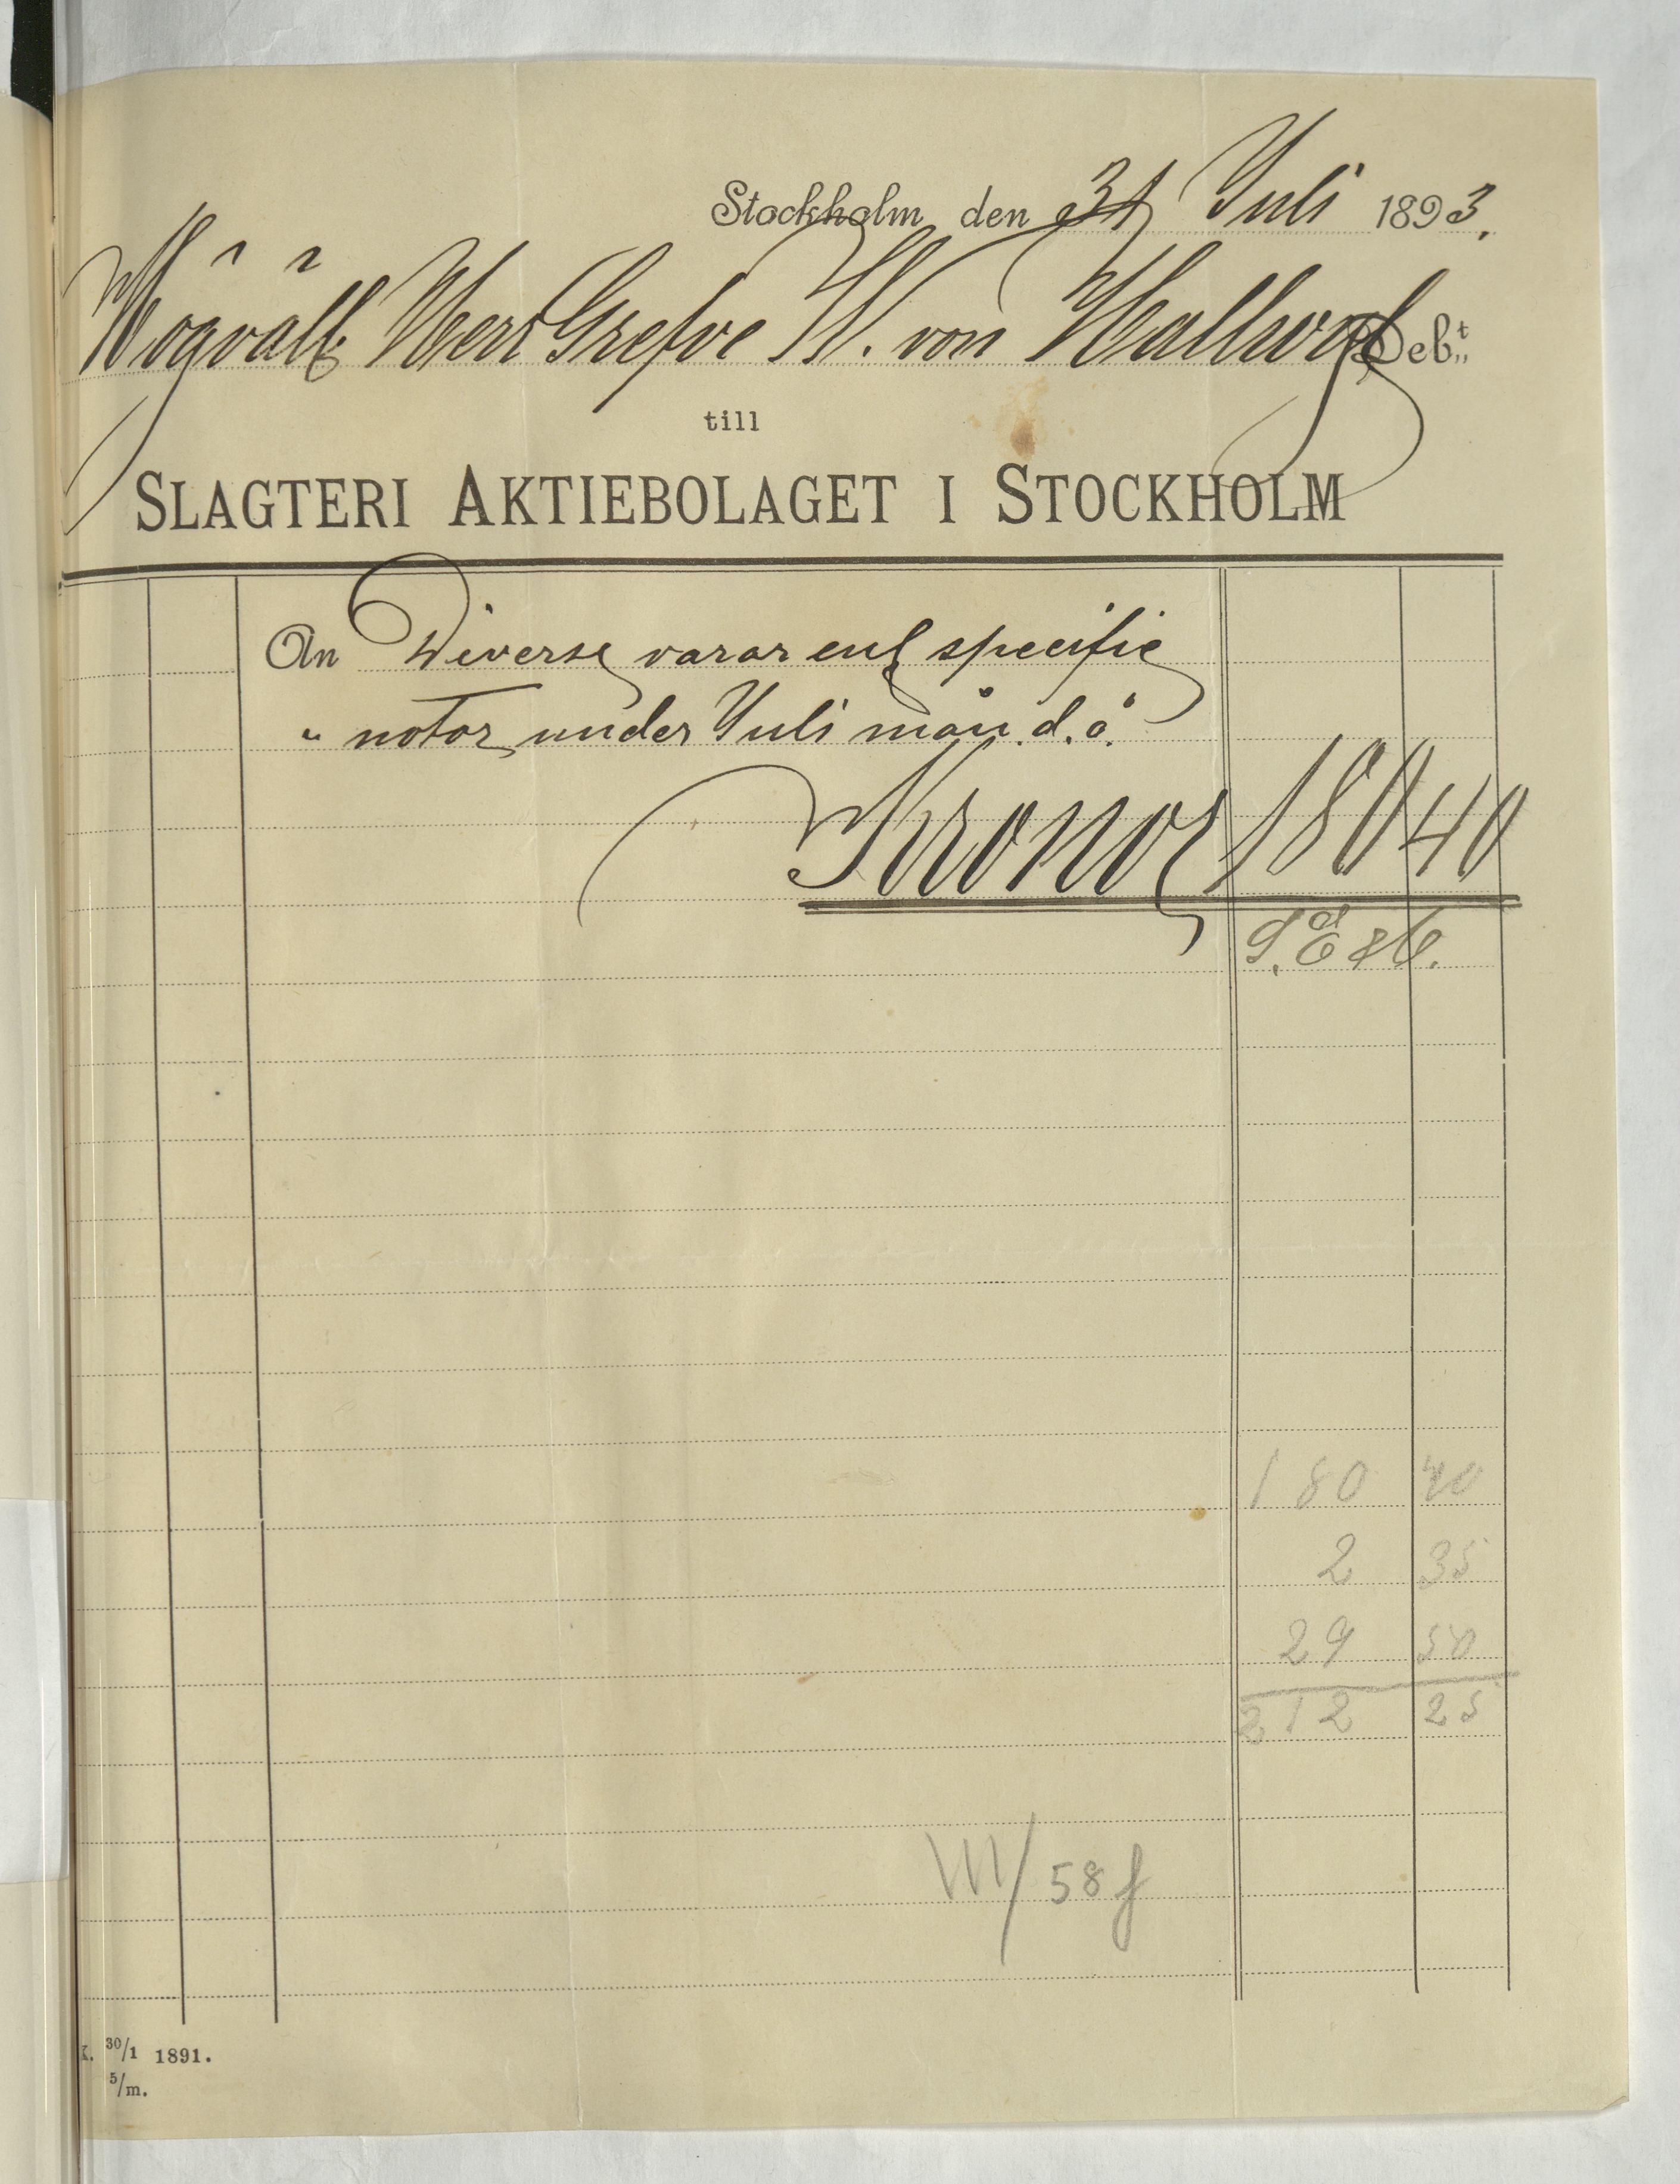 Stockholm den 31 Juli 1893.
Högvälb. Herr Grefve W. von Hallwyl Deb:t
till
SLAGTERI AKTIEBOLAGET I STOCKHOLM
An Diverse varor enl specific
" notor under Juli mån. d. å.
Kronor 180 40
S. E & O.
180 40
2 35
29 50
212 25
VII/58 f
K. 30/1 1891.
5/m.